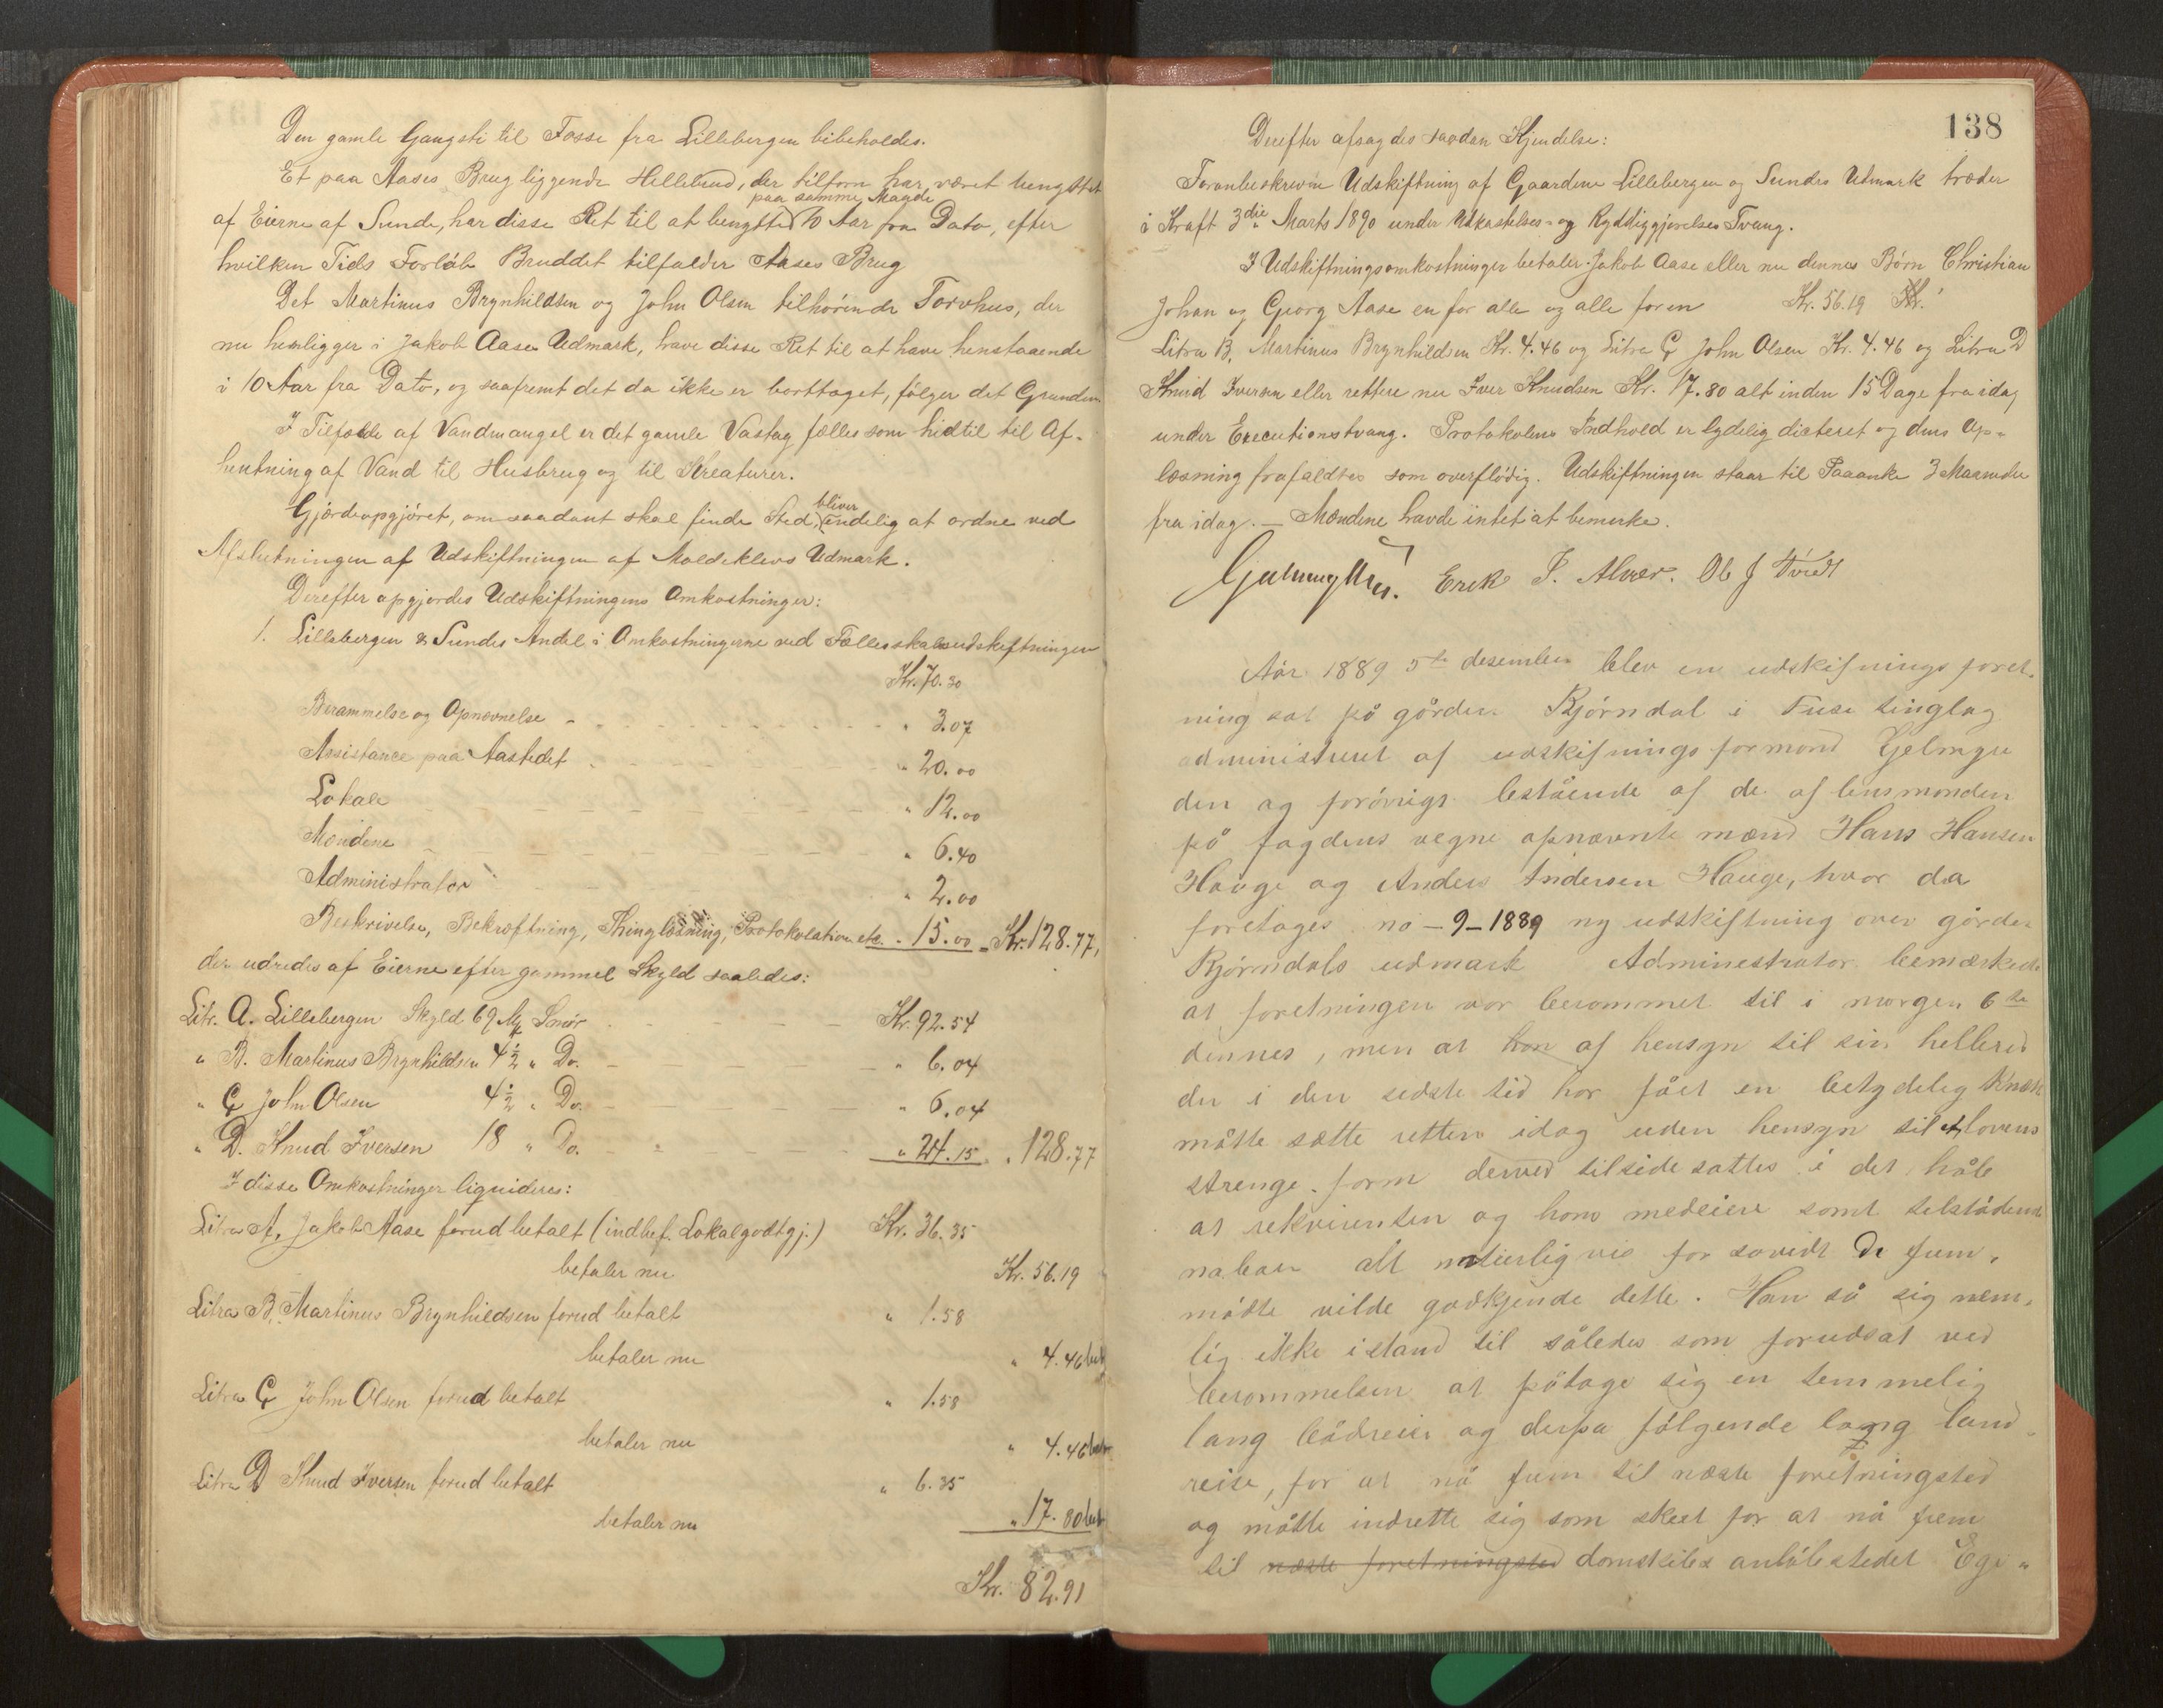 Den gamle Gangsti til Fosse fra Lillebergen bibeholdes.
Et paa Aases Brug liggende Hellebrud, der tilforn har været benyttet
af Eierne af Sunde, har disse Ret til at benytte paa samme Maade 10 Aar fra Dato, efter
hvilken Tids Forløb Bruddet tilfalder Aases Brug
Det Martinus Brynhildsen og John Olsen tilhørende Torvhus, der
nu henligger i Jakob Aases Udmark, have disse Ret til at have henstaaende
i 10 Aar fra Dato, og saafremt det da ikke er borttaget, følger det Grunden
I Tilfælde af Vandmangel er det gamle Vastag fælles som hidtil til Af-
hentning af Vand til Husbrug og til Kreaturer.
Gjærdeopgjøret, om saadant skal finde Sted, bliver endelig at ordne ved
Afslutningen af Udskiftningen af Moldeklevs Udmark.
Derefter opgjordes Udskiftningens Omkostninger:
1. Lillebergen & Sundes Andel i Omkostningerne ved Fællesskabsudskiftningen
Kr. 70.30
Berammelse og Opnævnelse " 3.07
Assistance paa Aastedet " 20.00
Lokale " 12.00
Mændene " 6.40
Administrator " 2.00
Beskrivelse, Bekræftning, Thinglæsning, Protokolation etc. " 15.00 = Kr. 128.77,
der udredes af Eierne efter gammel Skyld saaledes:
Litr. A. Lillebergen Skyld 69 Mk Smør Kr. 92.54
" B. Martinus Brynhildsen 4½ " Do. " 6.04
" C John Olsen 4½ " Do. " 6.04
" D. Knud Iversen 18 " Do. " 24.15 " 128.77
I disse Omkostninger liquideres:
Litra A, Jakob Aase forud betalt (indbef. Lokalgodtgj.) Kr. 36.35
betaler nu Kr. 56.19
Litra B, Martinus Brynhildsen forud betalt " 1.58
betaler nu " 4.46
Litra C John Olsen forud betalt " 1.58
betaler nu " 4.46
Litra D Knud Iversen forud betalt " 6.35
betaler nu " 17.80
Kr. 82.91
138
Derefter afsagdes saadan Kjendelse:
Foranbeskrevne Udskiftning af Gaardene Lillebergen og Sundes Udmark træder
i Kraft 3die Marts 1890 under Udkastelses- og Ryddiggjørelses Tvang.
I Udskiftningsomkostninger betaler Jakob Aase eller nu dennes Børn Christian
Johan og Georg Aase en for alle og alle for en Kr. 56.19 Kr.
Litra B, Martinus Brynhildsen Kr. 4.46 og Litra C John Olsen Kr. 4.46 og Litra D
Knud Iversen eller rettere nu Iver Knudsen Kr. 17.80 alt inden 15 Dage fra idag
under Executionstvang. Protokolens Indhold er lydelig dicteret og dens Op-
læsning frafaldtes som overflødig. Udskiftningen staar til Paaanke 3 Maaneder
fra idag. — Mændene havde intet at bemerke.
Erek I. Alver. Ol J Tvedt
Aar 1889 5te desember blev en udskifnings foret-
ning sat på gården Bjørndal i Fuse tinglag
administreret af udskifnings formand Gjelmyr
den og forøvrigt bestående af de af lensmanden
på fogdens vegne opnævnte mænd Hans Hansen
Hauge og Anders Andersen Hauge, hvor da
foretages no – 9 – 1889 ny udskiftning over gården
Bjørndals udmark Adminestrator bemærkede
at foretningen var berammet til i morgen 6te
dennes, men at han af hensyn til sin helbred
der i den sidste tid har fået en betydelig knæk
måtte sætte retten idag uden hensyn til at lovens
strenge form derved tilside sattes i det håb
at rekvirenten og hans medeiere samt tilstødende
naboer alt naturligvis for såvidt De frem-
mødte vilde godkjende dette. Han så sig nem-
lig ikke istand til således som forudsat ved
berammelsen at påtage sig en temmelig
lang bådreise og derpå følgende lang land-
reise, for at nå frem til næste foretningsted
og måtte indrette sig som skeet for at nå frem
til næste foretningsted damskibs anløbstedet Ege-